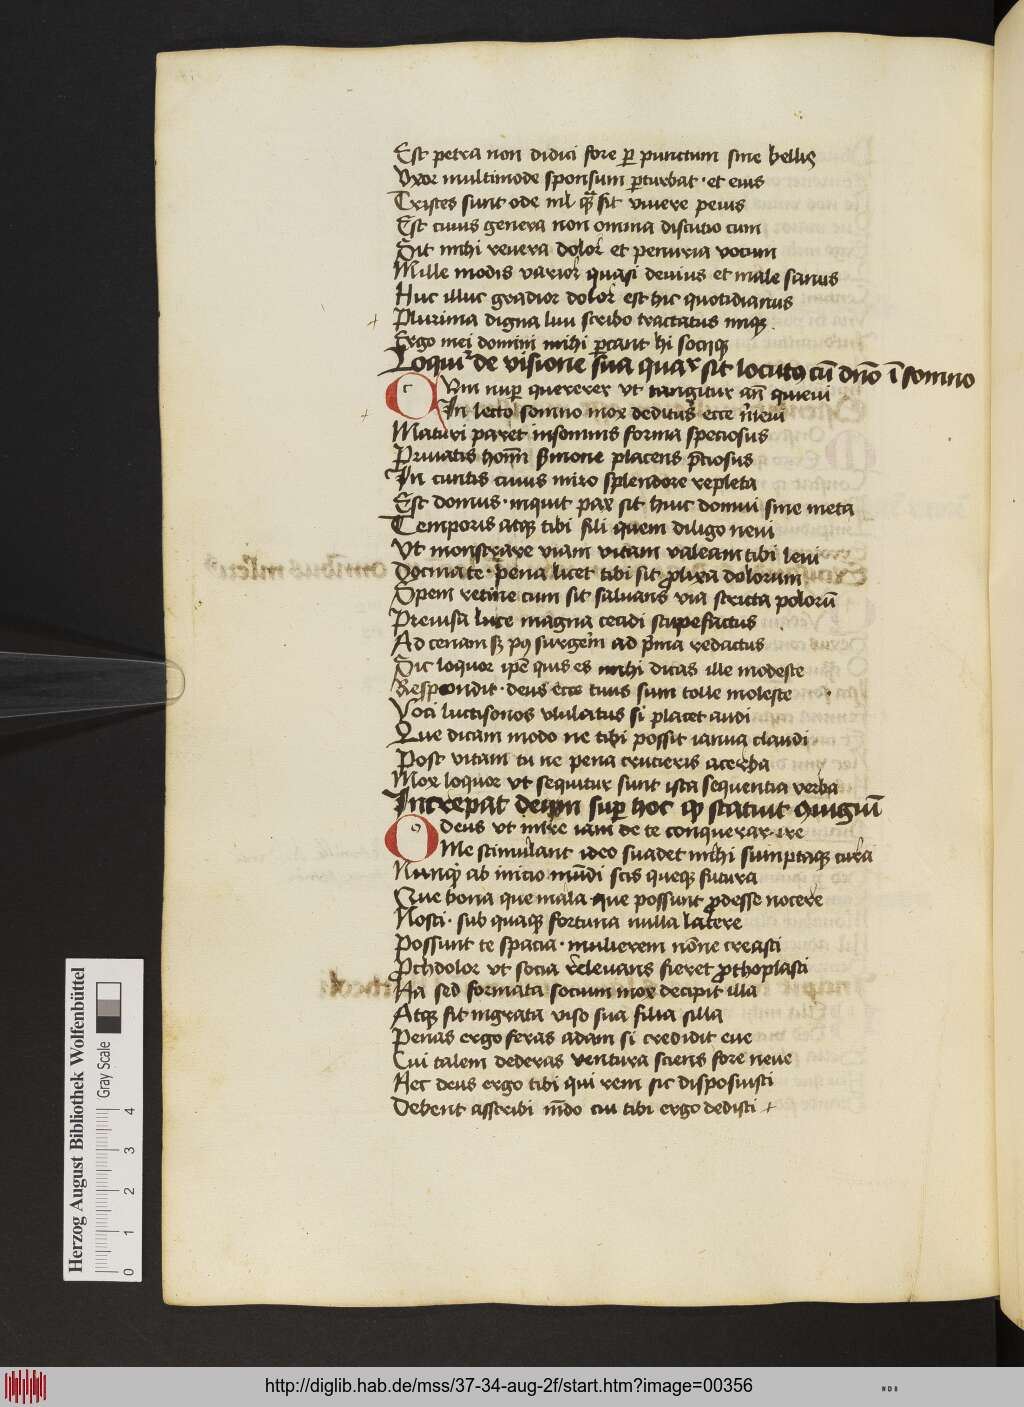 Est petra non didici fore ꝑ punctum sine bellis
Vxor multimode sponsum ꝑturbat · et eius
Tristes sunt ode nil sit viuere peius
Est cuius genera non omnia discutio cum
Sit mihi reuera dolor et penuria vocum
Mille modis varior quasi deuius et male sanus
Huc illuc gradior dolor est hic quotidianus
Plurima digna luu scribo tractatus
Ergo mei domini mihi ꝑcant hi
Loquit᷑ de visione sua qua sit locutꝰ cū dn̄o ī somno
Cum nuꝑ quererer vt tangitur an̄ quieui
In lecto somno mox deditus ecce
Maturi paret insomnis forma speciosus
Priuatis placens p̄ciosus
In cunctis cuius miro splendore repleta
Est domus · inquit pax sit huic domui sine meta
Temporis atqꝫ tibi fili quem diligo neui
Vt monstrare viam vitam valeam tibi leui
Docmate · pena licet tibi sit ꝓlixa dolorum
Spem retine cum sit saluans via stricta polorū
Preuisa luce magna cecidi stupefactus
Ad cenam sꝫ surgens ad redactus
Sic loquor ip̄e quis es mihi dicas ille modeste
Respondit · deus ecce tuus sum tolle moleste
Voci luctisonos vlulatus si placet audi
Que dicam modo ne tibi possit ianua claudi ·
Post vitam tu ne pena crucieris acerba
Mox loquor vt sequitur sunt ista sequentia verba
Increpat deum suꝑ hoc ꝙ statuit ꝯiugiū
O deus vt mire iam de te conquerar · ire
Me stimulant ideo suadet mihi sumptaqꝫ cura
Nunqꝫ ab inicio mūdi scis queqꝫ futura
Que bona que mala que possunt ꝓdesse nocere
Nosti · sub quaqꝫ fortuna nulla latere
Possunt te spacia · mulierem nōne creasti
Prohdolor vt socia releuans fieret ꝓthoplasti
Na sed formata socium mox decipit illa
Atqꝫ fit ingrata viso sua filia silla
Penas ergo feras adam si credidit eue
Cui talem dederas ventura sciens fore neue
Nec deus ergo tibi qui rem sic disposuisti
Debent asscribi cui tibi ergo dedisti
Herzog August Bibliothek Wolfenbüttel
Gray Scale
0 1 2 3 4
http://diglib.hab.de/mss/37-34-aug-2f/start.htm?image=00356